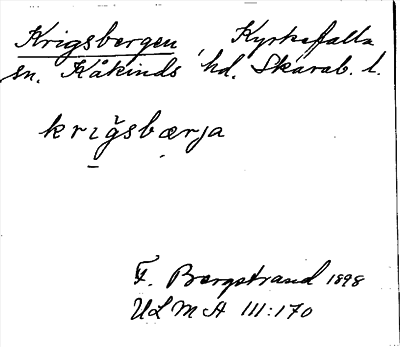 Krigsbergen, Kyrkefalla
sn. Kåkinds hd. Skarab. l.
kriğsbærja
F. Bergstrand 1898
ULMA III:170